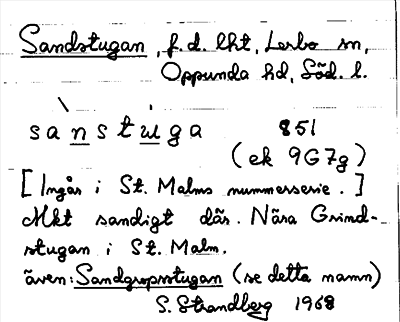 Sandstugan, f.d. lht, Lerbo sn,
Oppunda hd, Söd. l.
sanstuga 851
(ek 9G7g)
[Ingår i St. Malms nummerserie.]
Mkt sandigt där. Nära Grind-
stugan i St. Malm.
även: Sandgropsstugan (se detta namn)
S. Strandberg 1968